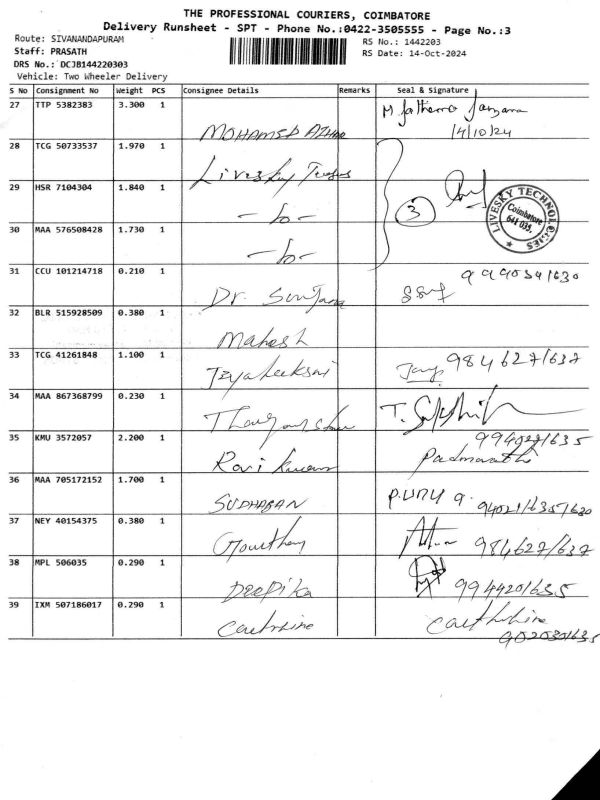 THE PROFESSIONAL COURIERS, COIMBATORE
Delivery Runsheet - SPT - Phone No.:0422-3505555 - Page No.:3
Route: SIVANANDAPURAM
RS No.: 1442203
Staff: PRASATH
RS Date: 14-Oct-2024
DRS No.: DCJB144220303
Vehicle: Two Wheeler Delivery
S No Consignment No Weight PCS Consignee Details Remarks Seal & Signature
27 TTP 5382383 3.300 1 MOHAMED AZHAR M Fathema
14/10/24
28 TCG 50733537 1.970 1 Livesky
29 HSR 7104304 1.840 1 -do- 3
LIVESKY TECHNOLOGIES
Coimbatore
641 035.
30 MAA 576508428 1.730 1 -do-
31 CCU 101214718 0.210 1 Dr. Sanjana
32 BLR 515928509 0.380 1 Mahesh
33 TCG 41261848 1.100 1 984627/637
34 MAA 867368799 0.230 1
35 KMU 3572057 2.200 1 Ravi Kumar Padmavathi
36 MAA 705172152 1.700 1 SUDHARAN
37 NEY 40154375 0.380 1 Gowtham 984627/637
38 MPL 506035 0.290 1 Deepika 9944201635
39 IXM 507186017 0.290 1